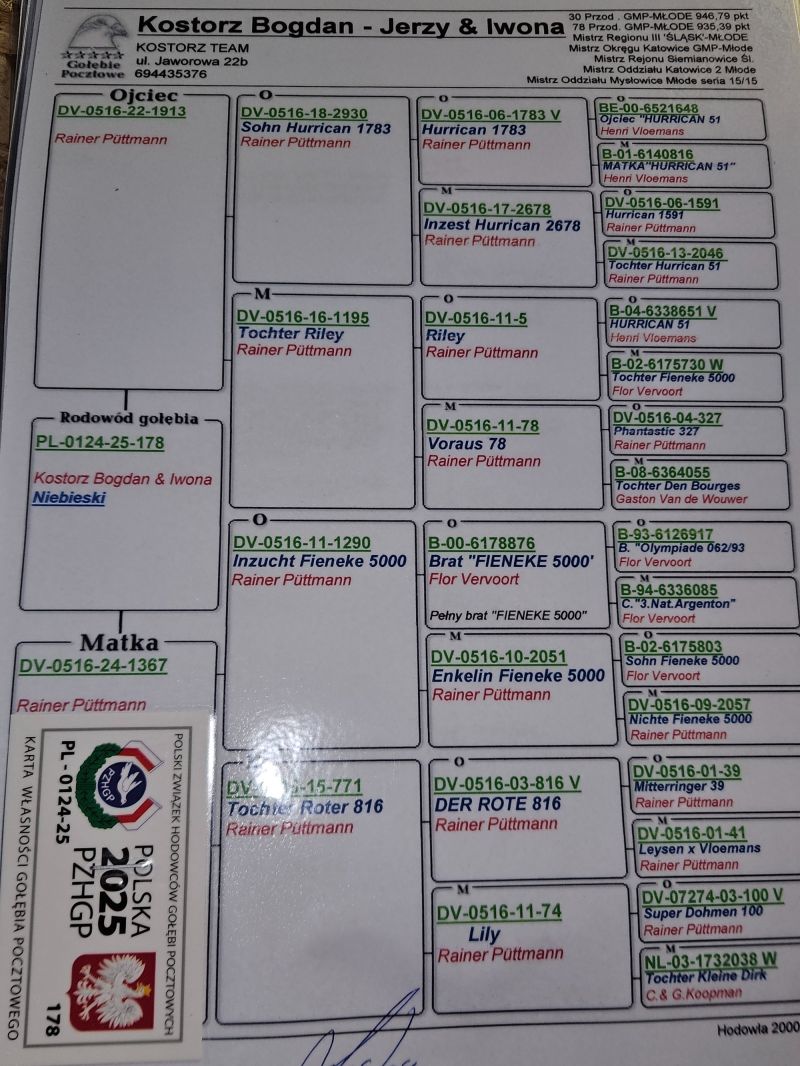 Kostorz Bogdan - Jerzy & Iwona
KOSTORZ TEAM
ul. Jaworowa 22b
694435376
Gołębie
Pocztowe
30 Przod . GMP-MŁODE 946,79 pkt
78 Przod. GMP-MŁODE 935,39 pkt
Mistrz Regionu III 'ŚLĄSK'-MŁODE
Mistrz Okręgu Katowice GMP-Młode
Mistrz Rejonu Siemianowice Śl.
Mistrz Oddziału Katowice 2 Młode
Mistrz Oddziału Mysłowice Młode seria 15/15
Ojciec
DV-0516-22-1913
Rainer Püttmann
Rodowód gołębia
PL-0124-25-178
Kostorz Bogdan & Iwona
Niebieski
Matka
DV-0516-24-1367
Rainer Püttmann
O
DV-0516-18-2930
Sohn Hurrican 1783
Rainer Püttmann
M
DV-0516-16-1195
Tochter Riley
Rainer Püttmann
O
DV-0516-11-1290
Inzucht Fieneke 5000
Rainer Püttmann
15-771
Tochter Roter 816
Rainer Püttmann
O
DV-0516-06-1783 V
Hurrican 1783
Rainer Püttmann
M
DV-0516-17-2678
Inzest Hurrican 2678
Rainer Püttmann
O
DV-0516-11-5
Riley
Rainer Püttmann
M
DV-0516-11-78
Voraus 78
Rainer Püttmann
O
B-00-6178876
Brat "FIENEKE 5000'
Flor Vervoort
Pełny brat "FIENEKE 5000"
M
DV-0516-10-2051
Enkelin Fieneke 5000
Rainer Püttmann
O
DV-0516-03-816 V
DER ROTE 816
Rainer Püttmann
M
DV-0516-11-74
Lily
Rainer Püttmann
O
BE-00-6521648
Ojciec "HURRICAN 51
Henri Vloemans
M
B-01-6140816
MATKA"HURRICAN 51"
Henri Vloemans
O
DV-0516-06-1591
Hurrican 1591
Rainer Püttmann
M
DV-0516-13-2046
Tochter Hurrican 51
Rainer Püttmann
O
B-04-6338651 V
HURRICAN 51
Henri Vloemans
M
B-02-6175730 W
Tochter Fieneke 5000
Flor Vervoort
O
DV-0516-04-327
Phantastic 327
Rainer Püttmann
M
B-08-6364055
Tochter Den Bourges
Gaston Van de Wouwer
O
B-93-6126917
B. "Olympiade 062/93
Flor Vervoort
M
B-94-6336085
C."3.Nat.Argenton"
Flor Vervoort
O
B-02-6175803
Sohn Fieneke 5000
Flor Vervoort
M
DV-0516-09-2057
Nichte Fieneke 5000
Rainer Püttmann
O
DV-0516-01-39
Mitterringer 39
Rainer Püttmann
M
DV-0516-01-41
Leysen x Vloemans
Rainer Püttmann
O
DV-07274-03-100 V
Super Dohmen 100
Rainer Püttmann
M
NL-03-1732038 W
Tochter Kleine Dirk
C.& G.Koopman
Hodowla 2000
POLSKI ZWIĄZEK HODOWCÓW GOŁĘBI POCZTOWYCH
POLSKA
2025
PZHGP
PZHGP
PL - 0124-25
178
KARTA WŁASNOŚCI GOŁĘBIA POCZTOWEGO